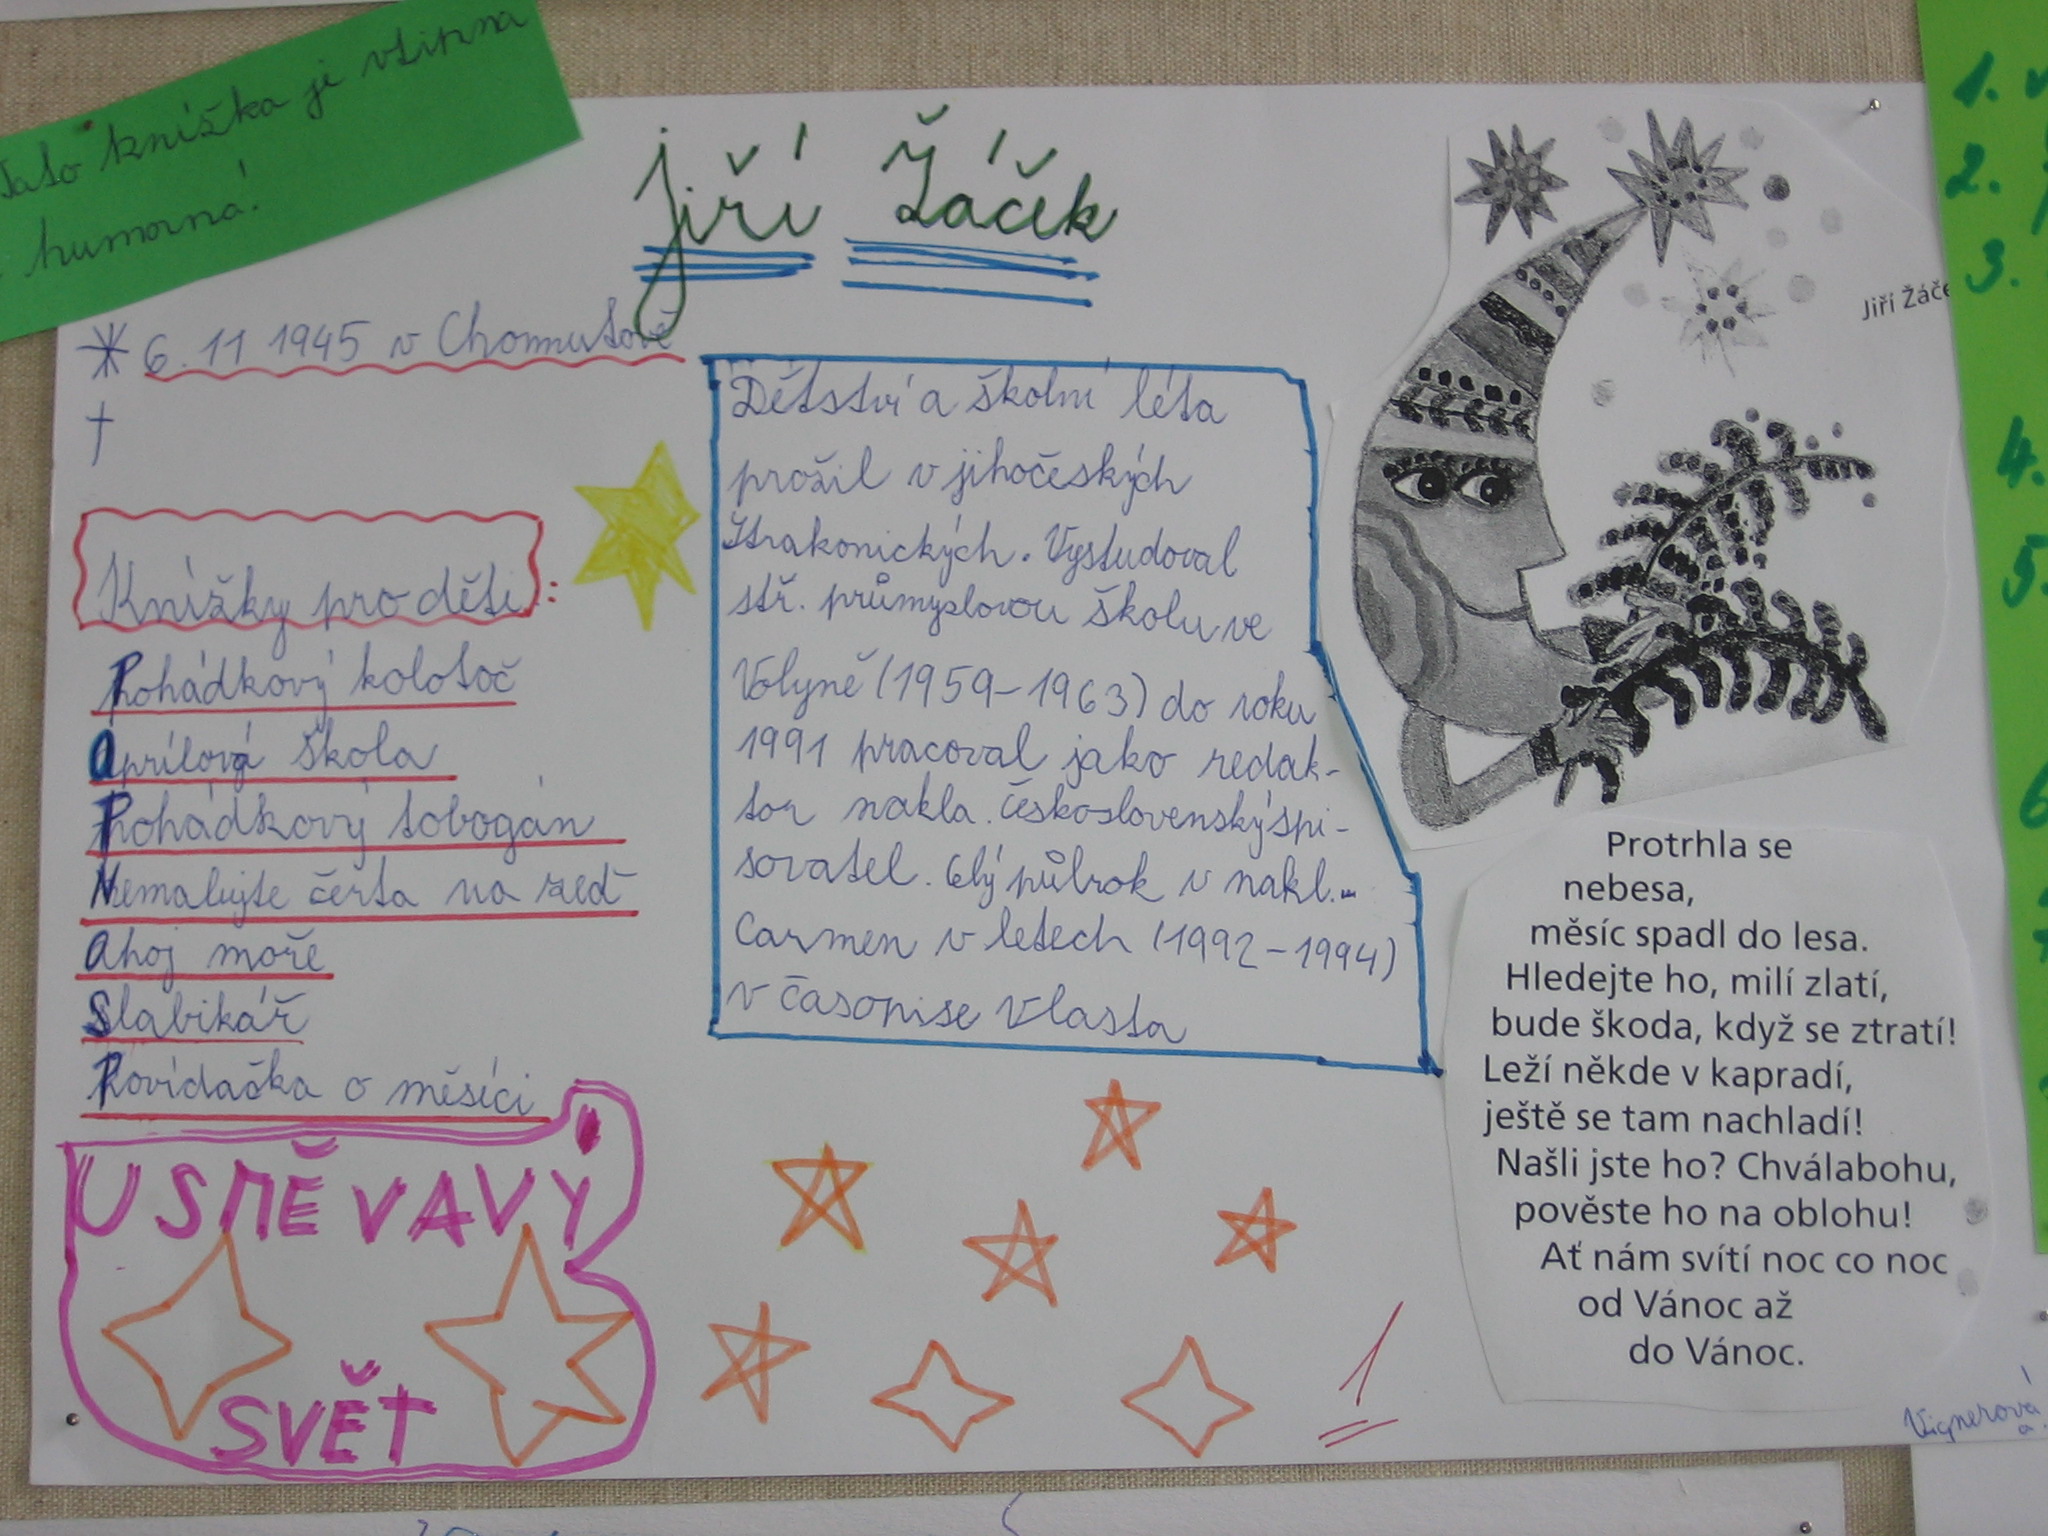 Tato knížka je vtipná
humorná!
Jiří Žáček
* 6. 11 1945 v Chomutově
†
Knížky pro děti:
Pohádkový kolotoč
Aprílová škola
Pohádkový tobogán
Nemalujte čerta na zeď
Ahoj moře
Slabikář
Povídačka o měsíci
USMĚVAVÝ
SVĚT
Dětství a školní léta
prožil v jihočeských
Strakonických. Vystudoval
stř. průmyslovou školu ve
Volyně (1959-1963) do roku
1991 pracoval jako redak-
tor nakla. československý spi-
sovatel. Celý půlrok v nakl...
Carmen v letech (1992-1994)
v časopise Vlasta
1
Jiří Žáče
Protrhla se
nebesa,
měsíc spadl do lesa.
Hledejte ho, milí zlatí,
bude škoda, když se ztratí!
Leží někde v kapradí,
ještě se tam nachladí!
Našli jste ho? Chválabohu,
pověste ho na oblohu!
Ať nám svítí noc co noc
od Vánoc až
do Vánoc.
Vignerová
1. v
2.
3.
4.
5.
6